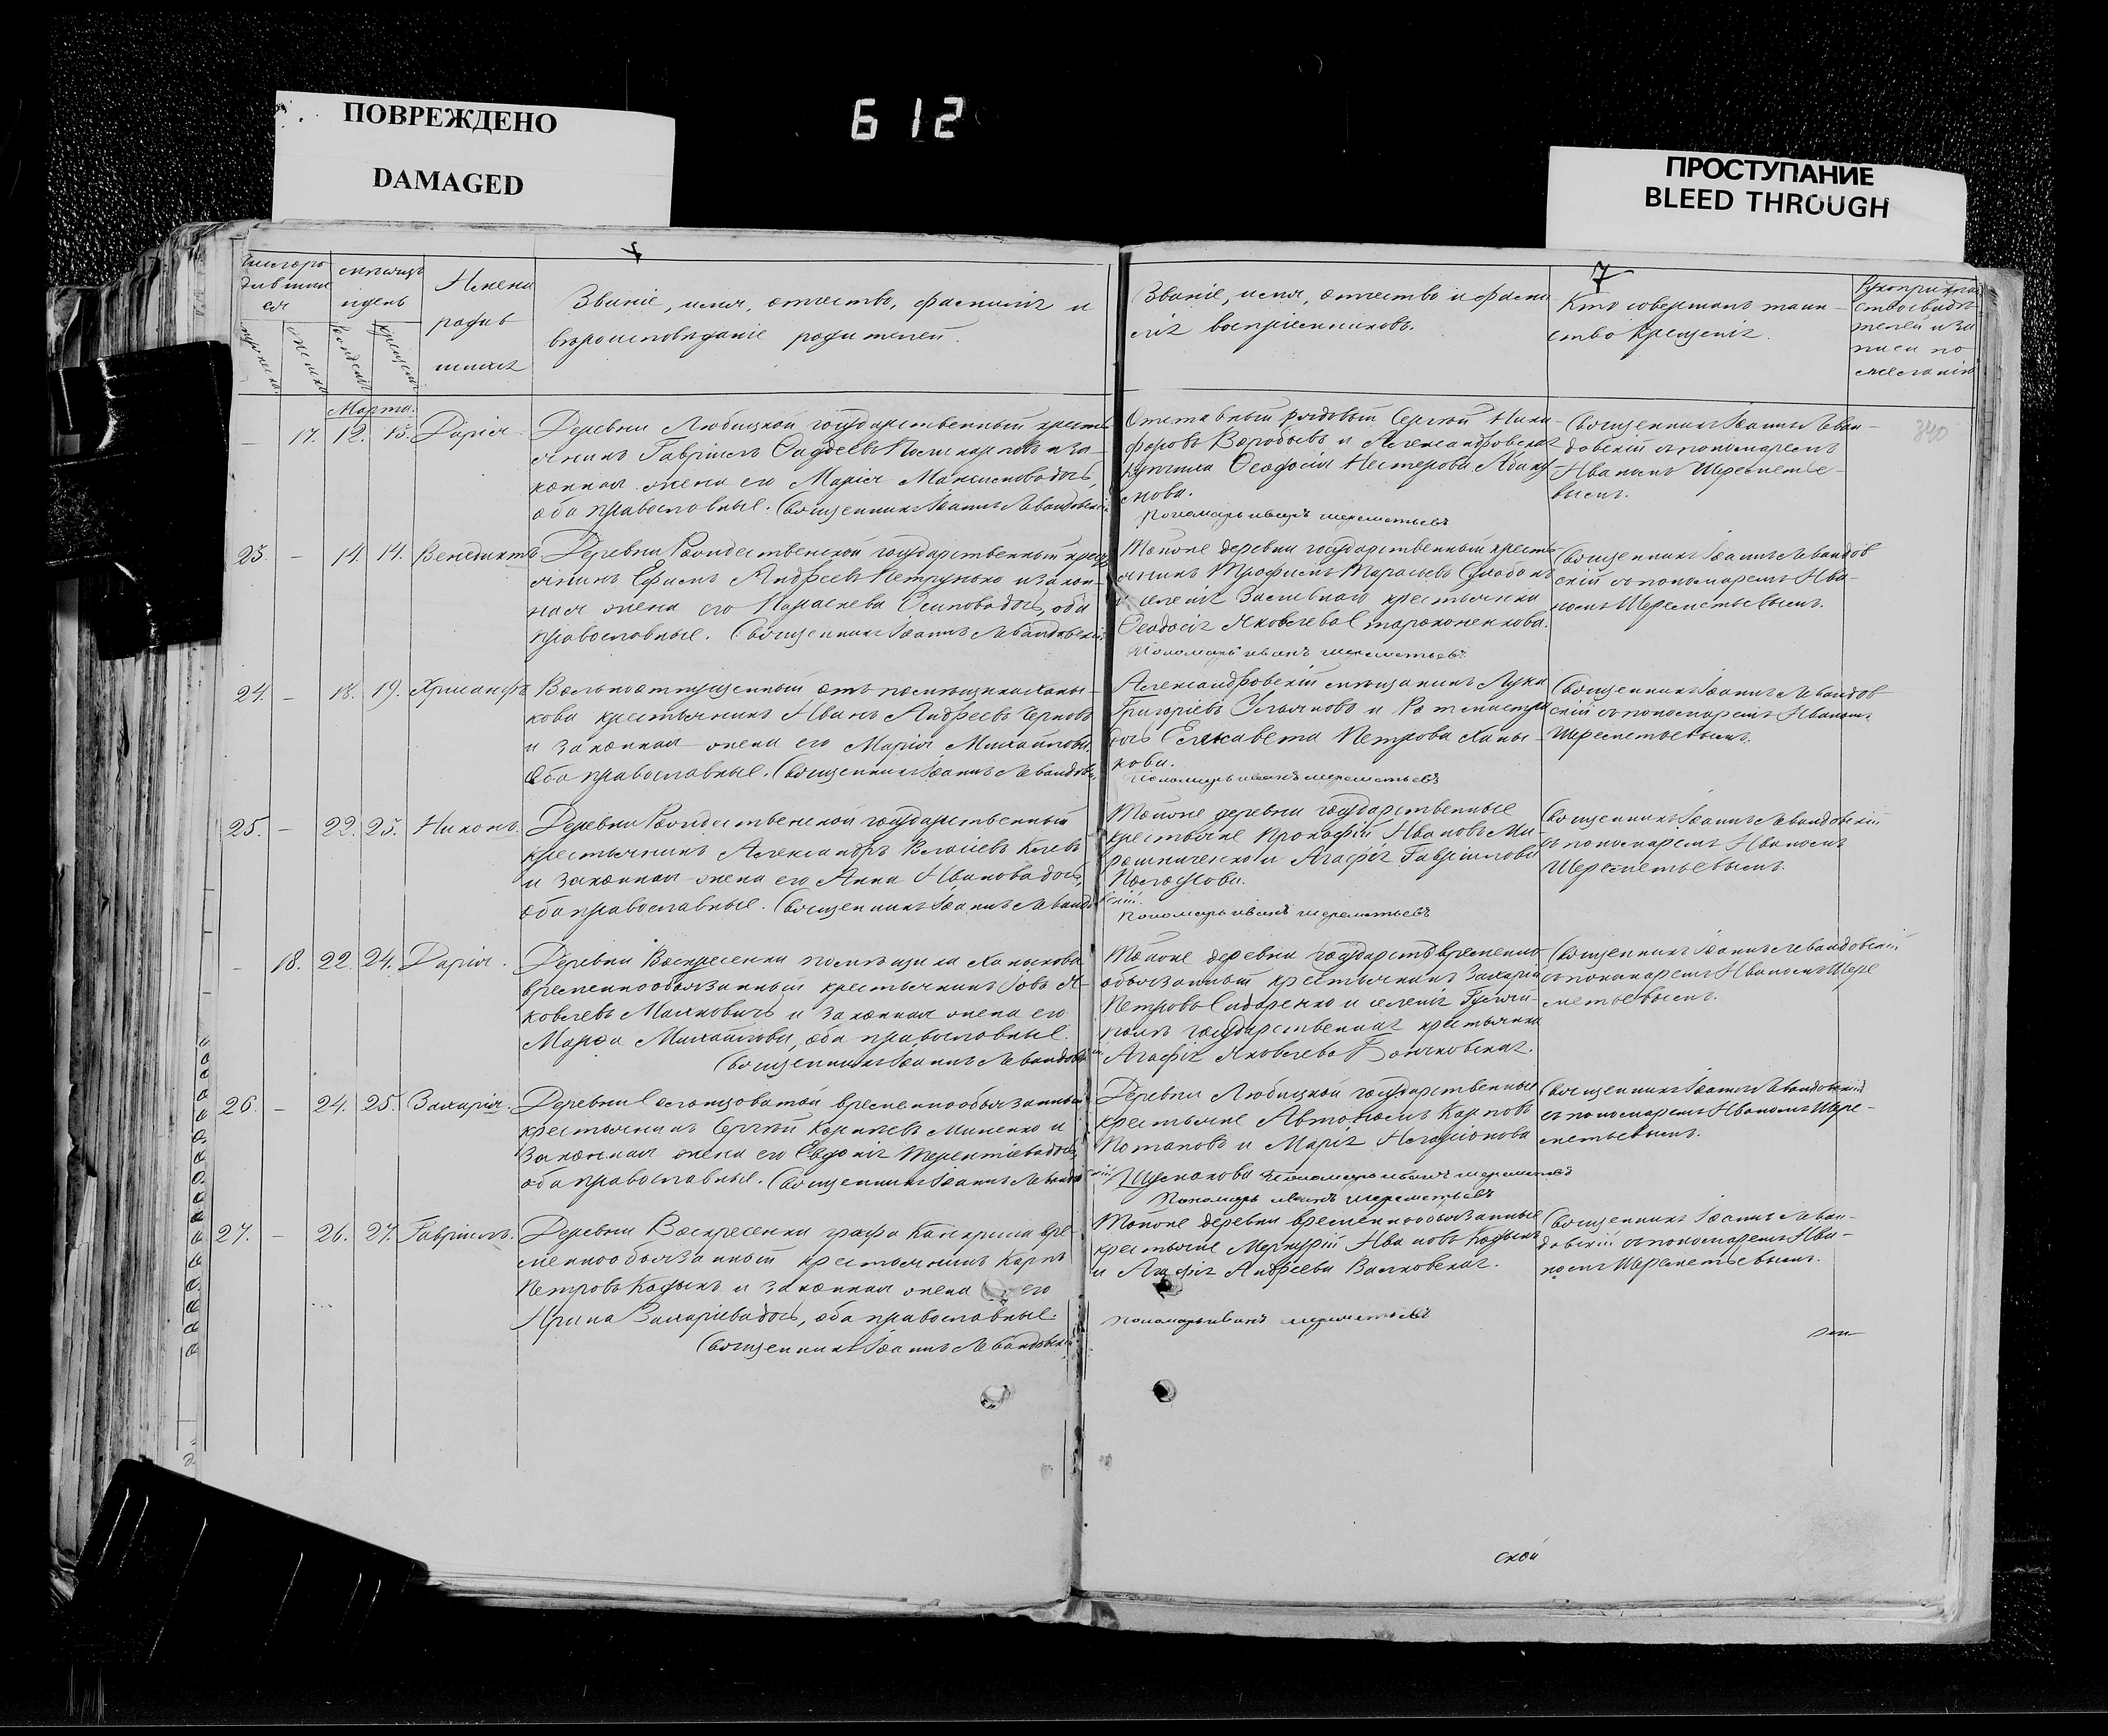 ПОВРЕЖДЕНО
DAMAGED
612
ПРОСТУПАНИЕ
BLEED THROUGH
7
Мѣсяцъ
и день
Имена
родив
шихся
Званіе, имя, отчество, фамилія и
вѣроисповѣданіе родителей.
Званіе, имя, отчество и фами
лія воспріемниковъ.
Кто совершалъ таин-
ство крещенія.
Марта.
– 17. 12. 15. Дарія
Деревни Любицкой государственный кресть
янинъ Гавріилъ Фадѣевъ и за-
конная жена его Марія Максимова дочь,
оба православные. Священникъ Іоаннъ Левандовскій
Отставный рядовый Сергѣй Ники
форовъ Воробьевъ и Александровская
купчиха Ѳеодосія Нестерова Абаку
мова.
Пономарь Иванъ Шереметьевъ
Священникъ Іоаннъ Леван-
довскій съ пономаремъ
Иваномъ Шереметье-
вымъ.
340
23. – 14. 14. Венедиктъ
Деревни Рождественской государственный кресть
янинъ Ефимъ Андреевъ Петрунько и закон-
ная жена его Параскева Осипова дочь, оба
православные. Священникъ Іоаннъ Левандовскій
Тойже деревни государственный кресть
янинъ Трофимъ Тарасьевъ
и селенія крестьянка
Ѳеодосія Яковлева Стародоненкова.
Пономарь Иванъ Шереметьевъ
Священникъ Іоаннъ Левандов
скій съ пономаремъ Ива-
номъ Шереметьевымъ.
24. – 18. 19. Хрисанфъ
Вольноотпущенный отъ помѣщика Ханы-
кова крестьянинъ Иванъ Андреевъ Черновъ
и законная жена его Марія Михайлова,
оба православные. Священникъ Іоаннъ Левандов
Александровскій мѣщанинъ Лука
Григорьевъ Ульяновъ и Ротмистра
дочь Елисавета Петрова Ханы-
кова.
Пономарь Иванъ Шереметьевъ
Священникъ Іоаннъ Левандов
скій съ пономаремъ Иваномъ
Шереметьевымъ.
25. – 22. 25. Никонъ.
Деревни Рождественской государственный
крестьянинъ Александръ Власіевъ
и законная жена его Анна Иванова дочь,
оба православные. Священникъ Іоаннъ Леванд
Тойже деревни государственные
крестьяне Прокофій Ивановъ Ми-
рошниченко и Агафія Гавріилова
Пономарь Иванъ Шереметьевъ
Священникъ Іоаннъ Левандовскій
съ пономаремъ Иваномъ
Шереметьевымъ.
– 18. 22. 24. Дарія.
Деревни Воскресенки помѣщика Ханыкова
временнообязанный крестьянинъ Іовъ Я-
ковлевъ Малковичъ и законная жена его
Марѳа Михайлова, оба православные.
Священникъ Іоаннъ Левандов
Тойже деревни временно
обязанный крестьянинъ Захарій
Петровъ Сидоренко и селенія Гусин-
государственная крестьянка
Агафія Яковлева
Священникъ Іоаннъ Левандовскій
съ пономаремъ Иваномъ Шере
метьевымъ.
26. – 24. 25. Захарія.
Деревни временнообязанный
крестьянинъ Сергѣй Корнѣевъ Миненко и
законная жена его Евдокія Терентіева дочь,
оба православные. Священникъ Іоаннъ Леванд
Деревни Любицкой государственные
крестьяне Автономъ Карповъ
Потаповъ и Марія Иларіонова
Пономарь Иванъ Шереметьевъ
Пономарь Иванъ Шереметьевъ
Священникъ Іоаннъ Левандовскій
съ пономаремъ Иваномъ Шере-
метьевымъ.
27. – 26. 27. Гавріилъ.
Деревни Воскресенки графа Канкрина вре-
меннообязанный крестьянинъ Карпъ
Петровъ Кодыкъ и законная жена его
Ирина Захаріева дочь, оба православные.
Священникъ Іоаннъ Левандовскій
Тойже деревни временнообязанные
крестьяне Меркурій Ивановъ Кодыкъ
и Агафія Андреева Валковская.
Пономарь Иванъ Шереметьевъ
Священникъ Іоаннъ Леван-
довскій съ пономаремъ Ива-
номъ Шереметьевымъ.
ской